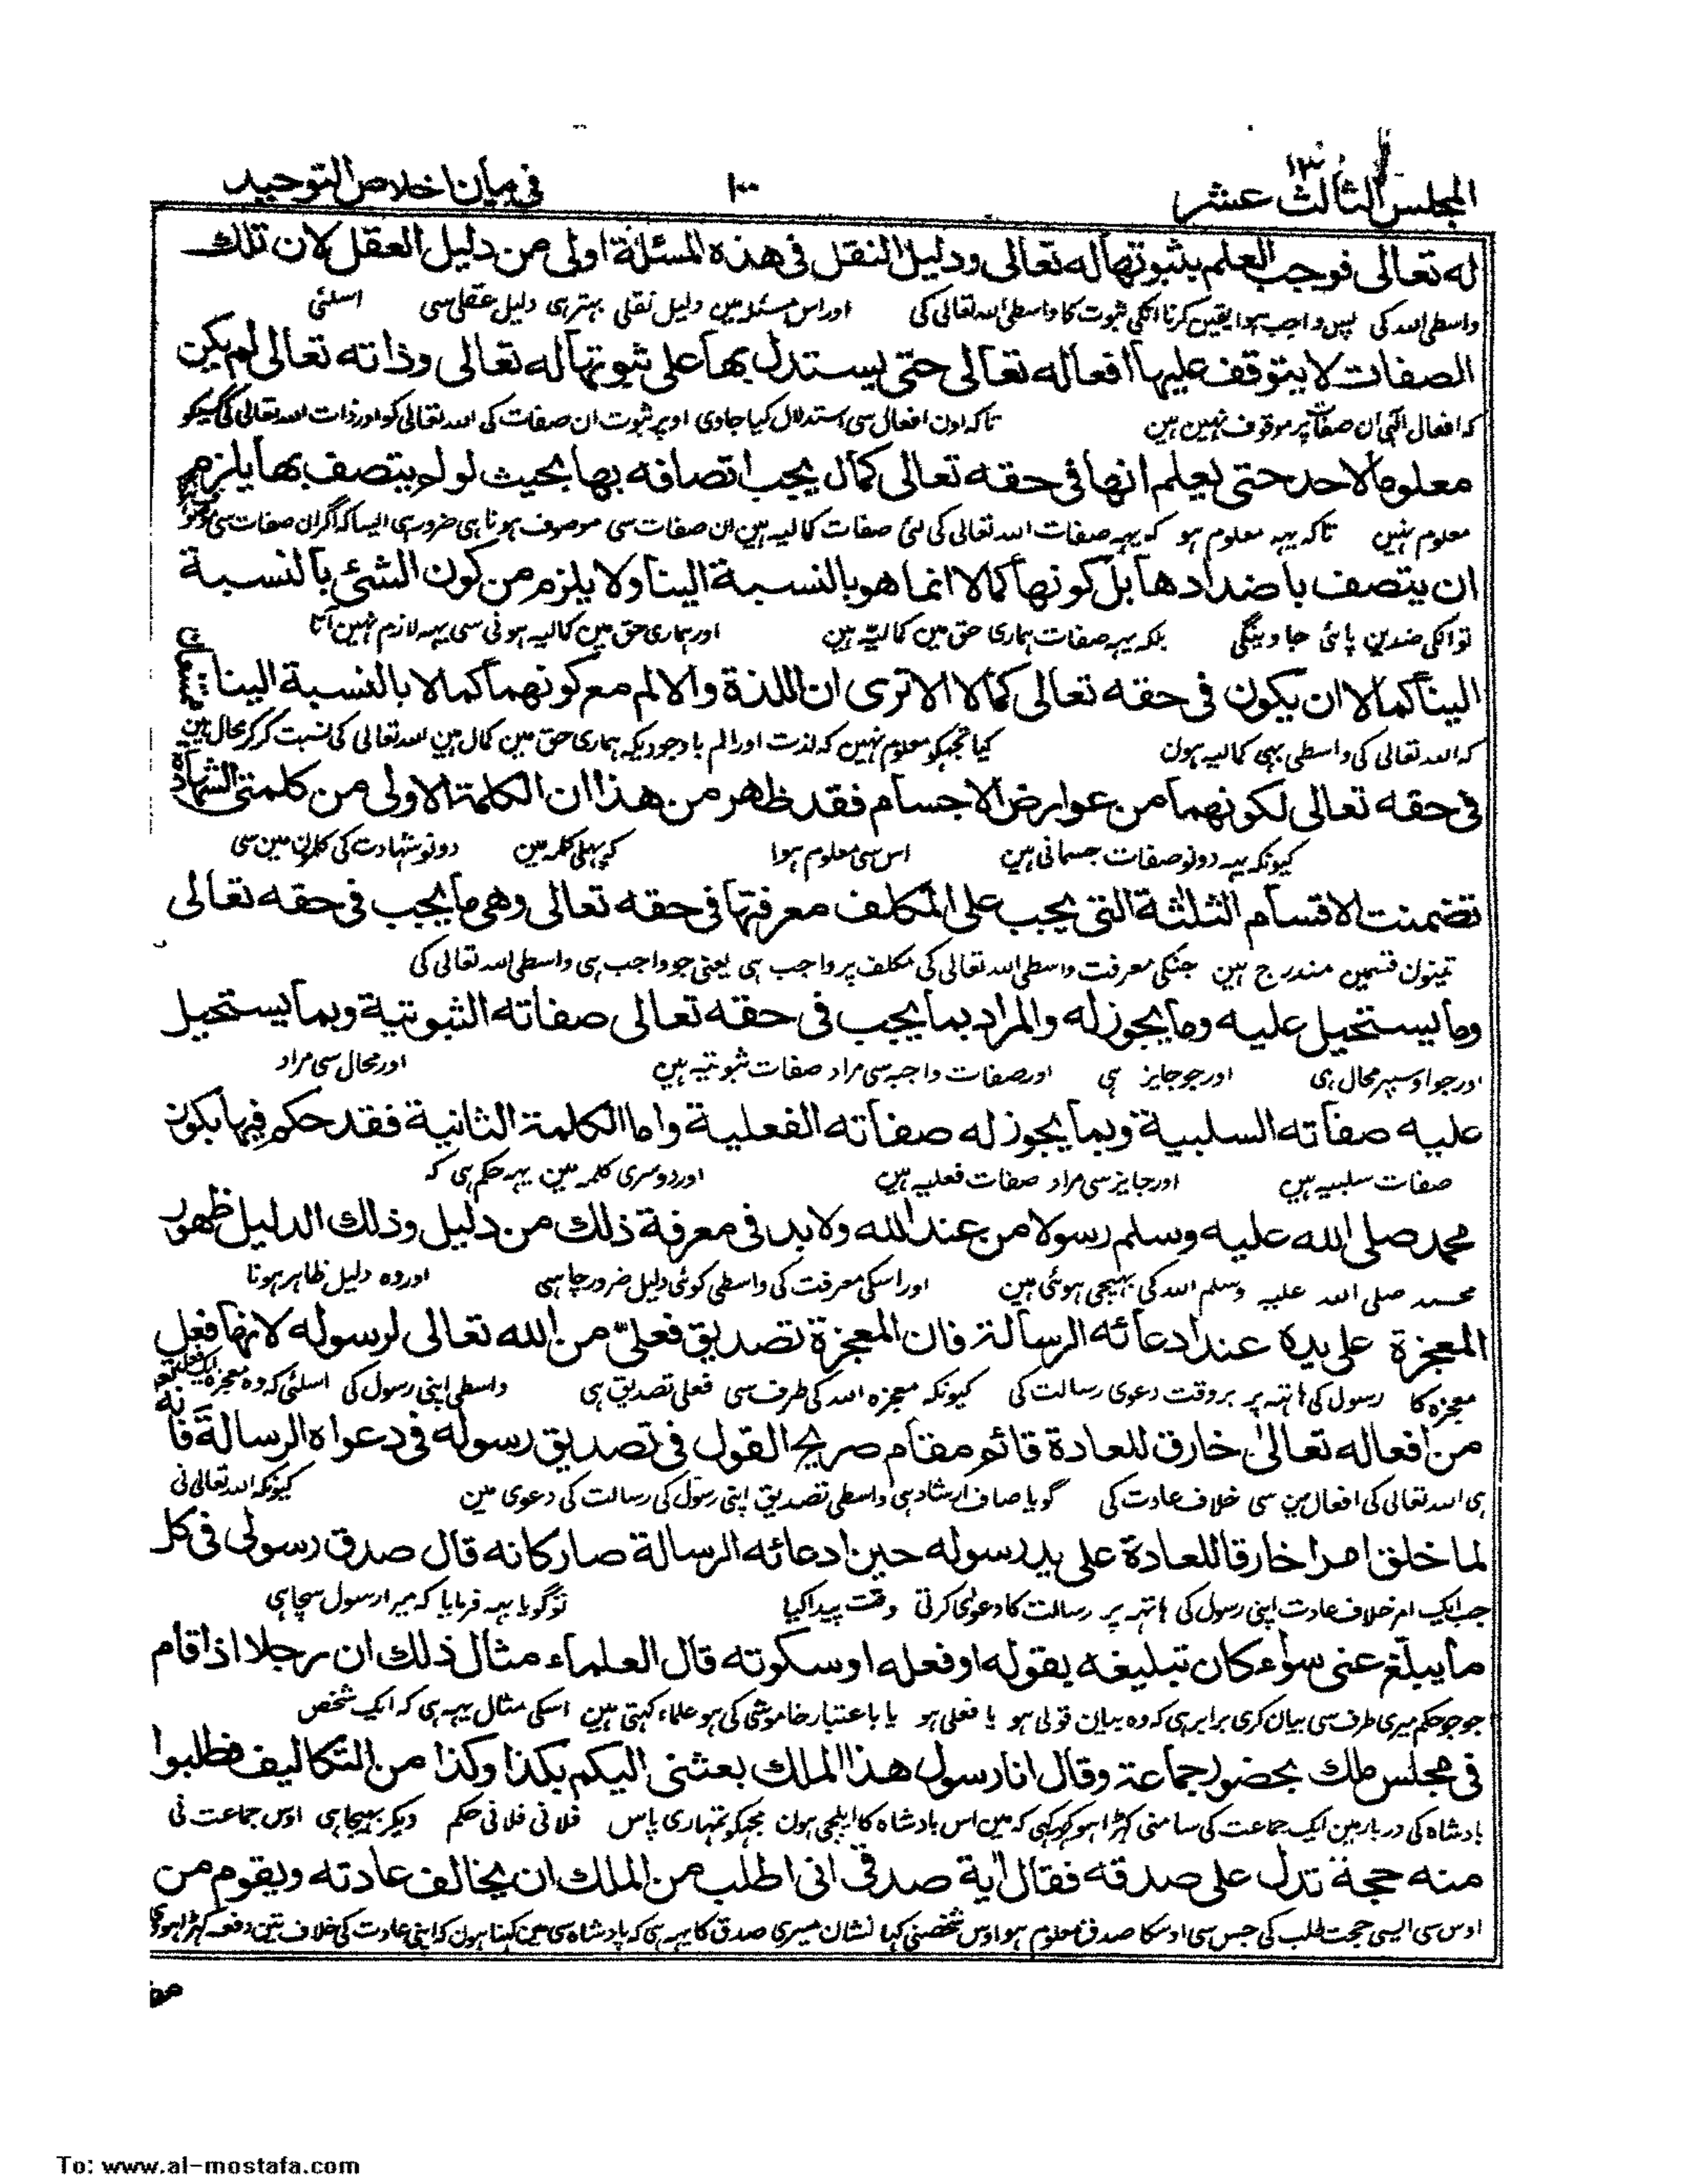 المجلس الثالث عشر ١٣
١٠٠
في بيان اخلاص التوحيد
له تعالى فوجب العلم بثبوتها له تعالى ودليل النقل في هذه المسئلة اولى من دليل العقل لان تلك
واسطی الله کی پس واجب ہوا یقین کرنا انکی ثبوت کا واسطی الله تعالی کی اور اس مسئلہ مین دلیل نقلی بہتر ہی دلیل عقلی سی اسلئی
الصفات لا يتوقف عليها افعاله تعالى حتى يستدل بها على ثبوتها له تعالى وذاته تعالى لم يكن
کہ افعال الہی ان صفات پر موقوف نہین ہین تاکہ اون افعال سی استدلال کیا جاوی اوپر ثبوت ان صفات کی الله تعالی کو اور ذات الله تعالی کی کسیکو
معلوما لاحد حتى يعلم انها في حقه تعالى كمال يجب اتصافه بها بحيث لو لم يتصف بها يلزم
معلوم نہین تاکہ یہہ معلوم ہو کہ یہہ صفات الله تعالی کی لئی صفات کمالیہ ہین ان صفات سی موصوف ہونا ہی ضرور ہی ایسا کہ اگر ان صفات سی
ان يتصف باضدادها بل كونها كمالا انما هو بالنسبة الينا ولا يلزم من كون الشئ بالنسبة
تو انکی ضدین پائی جاوینگی بلکہ یہہ صفات ہماری حق مین کمالیہ ہین اور ہماری حق مین کمالیہ ہونی سی یہہ لازم نہین آتا
الينا كمالا ان يكون في حقه تعالى كمالا الا ترى ان اللذة والالم مع كونهما كمالا بالنسبة الينا
کہ الله تعالی کی واسطی بہی کمالیہ ہون کیا تجہکو معلوم نہین کہ لذت اور الم باوجودیکہ ہماری حق مین کمال ہین الله تعالی کی نسبت کرکر محال ہین
في حقه تعالى لكونهما من عوارض الاجسام فقد ظهر من هذا ان الكلمة الاولى من كلمتي الشهادة
کیونکہ یہہ دونو صفات جسمانی ہین اس سی معلوم ہوا کہ پہلی کلمہ مین دونو شہادت کی کلمون مین سی
تضمنت الاقسام الثلثة التي يجب على المكلف معرفتها في حقه تعالى وهي ما يجب في حقه تعالى
تینون قسمین مندرج ہین جنکی معرفت واسطی الله تعالی کی مکلف پر واجب ہی یعنی جو واجب ہی واسطی الله تعالی کی
وما يستحيل عليه وما يجوز له والمراد بما يجب في حقه تعالى صفاته الثبوتية وبما يستحيل
اور جو اوسپر محال ہی اور جو جایز ہی اور صفات واجبہ سی مراد صفات ثبوتیہ ہین اور محال سی مراد
عليه صفاته السلبية وبما يجوز له صفاته الفعلية واما الكلمة الثانية فقد حكم فيها بكون
صفات سلبیہ ہین اور جایز سی مراد صفات فعلیہ ہین اور دوسری کلمہ مین یہہ حکم ہی کہ
محمد صلى الله عليه وسلم رسولا من عند الله ولا بد في معرفة ذلك من دليل وذلك الدليل ظهور
محمد صلی الله علیہ وسلم الله کی بہیجی ہوئی ہین اور اسکی معرفت کی واسطی کوئی دلیل ضرور چاہی اور وہ دلیل ظاہر ہونا
المعجزة على يده عند ادعائه الرسالة فان المعجزة تصديق فعليّ من الله تعالى لرسوله لانها فعل
معجزہ کا رسول کی ہاتہہ پر بر وقت دعوی رسالت کی کیونکہ معجزہ الله کی طرف سی فعلی تصدیق ہی واسطی اپنی رسول کی اسلئی کہ وہ معجزہ ایک فعل
من افعاله تعالى خارق للعادة قائم مقام صريح القول في تصديق رسوله في دعواه الرسالة فانه
ہی الله تعالی کی افعال مین سی خلاف عادت کی گویا صاف ارشاد ہی واسطی تصدیق اپنی رسول کی رسالت کی دعوی مین کیونکہ الله تعالی نی
لما خلق امرا خارقا للعادة على يد رسوله حين ادعائه الرسالة صار كانه قال صدق رسولي في كل
جب ایک امر خلاف عادت اپنی رسول کی ہاتہہ پر رسالت کا دعوی کرتی وقت پیدا کیا تو گویا یہہ فرمایا کہ میرا رسول سچا ہی
ما يبلّغ عني سواء كان تبليغه بقوله او فعله او سكوته قال العلماء مثال ذلك ان رجلا اذا قام
جو جو حکم میری طرف سی بیان کری برابر ہی کہ وہ بیان قولی ہو یا فعلی ہو یا باعتبار خاموشی کی ہو علماء کہتی ہین اسکی مثال یہہ ہی کہ ایک شخص
في مجلس ملك بحضور جماعة وقال انا رسول هذا الملك بعثني اليكم بكذا وكذا من التكاليف فطلبوا
بادشاہ کی دربار مین ایک جماعت کی سامنی کہڑا ہو کر کہی کہ مین اس بادشاہ کا ایلچی ہون مجہکو تمہاری پاس فلانی فلانی حکم دیکر بہیجا ہی اوس جماعت نی
منه حجة تدل على صدقه فقال اٰية صدقي اني اطلب من الملك ان يخالف عادته ويقوم من
اوس سی ایسی حجت طلب کی جس سی اوسکا صدق معلوم ہو اوس شخصنی کہا نشان میری صدق کا یہہ ہی کہ پادشاہ سی مین کہتا ہون کہ اپنی عادت کی خلاف تین دفعہ کہڑا
To: www.al-mostafa.com